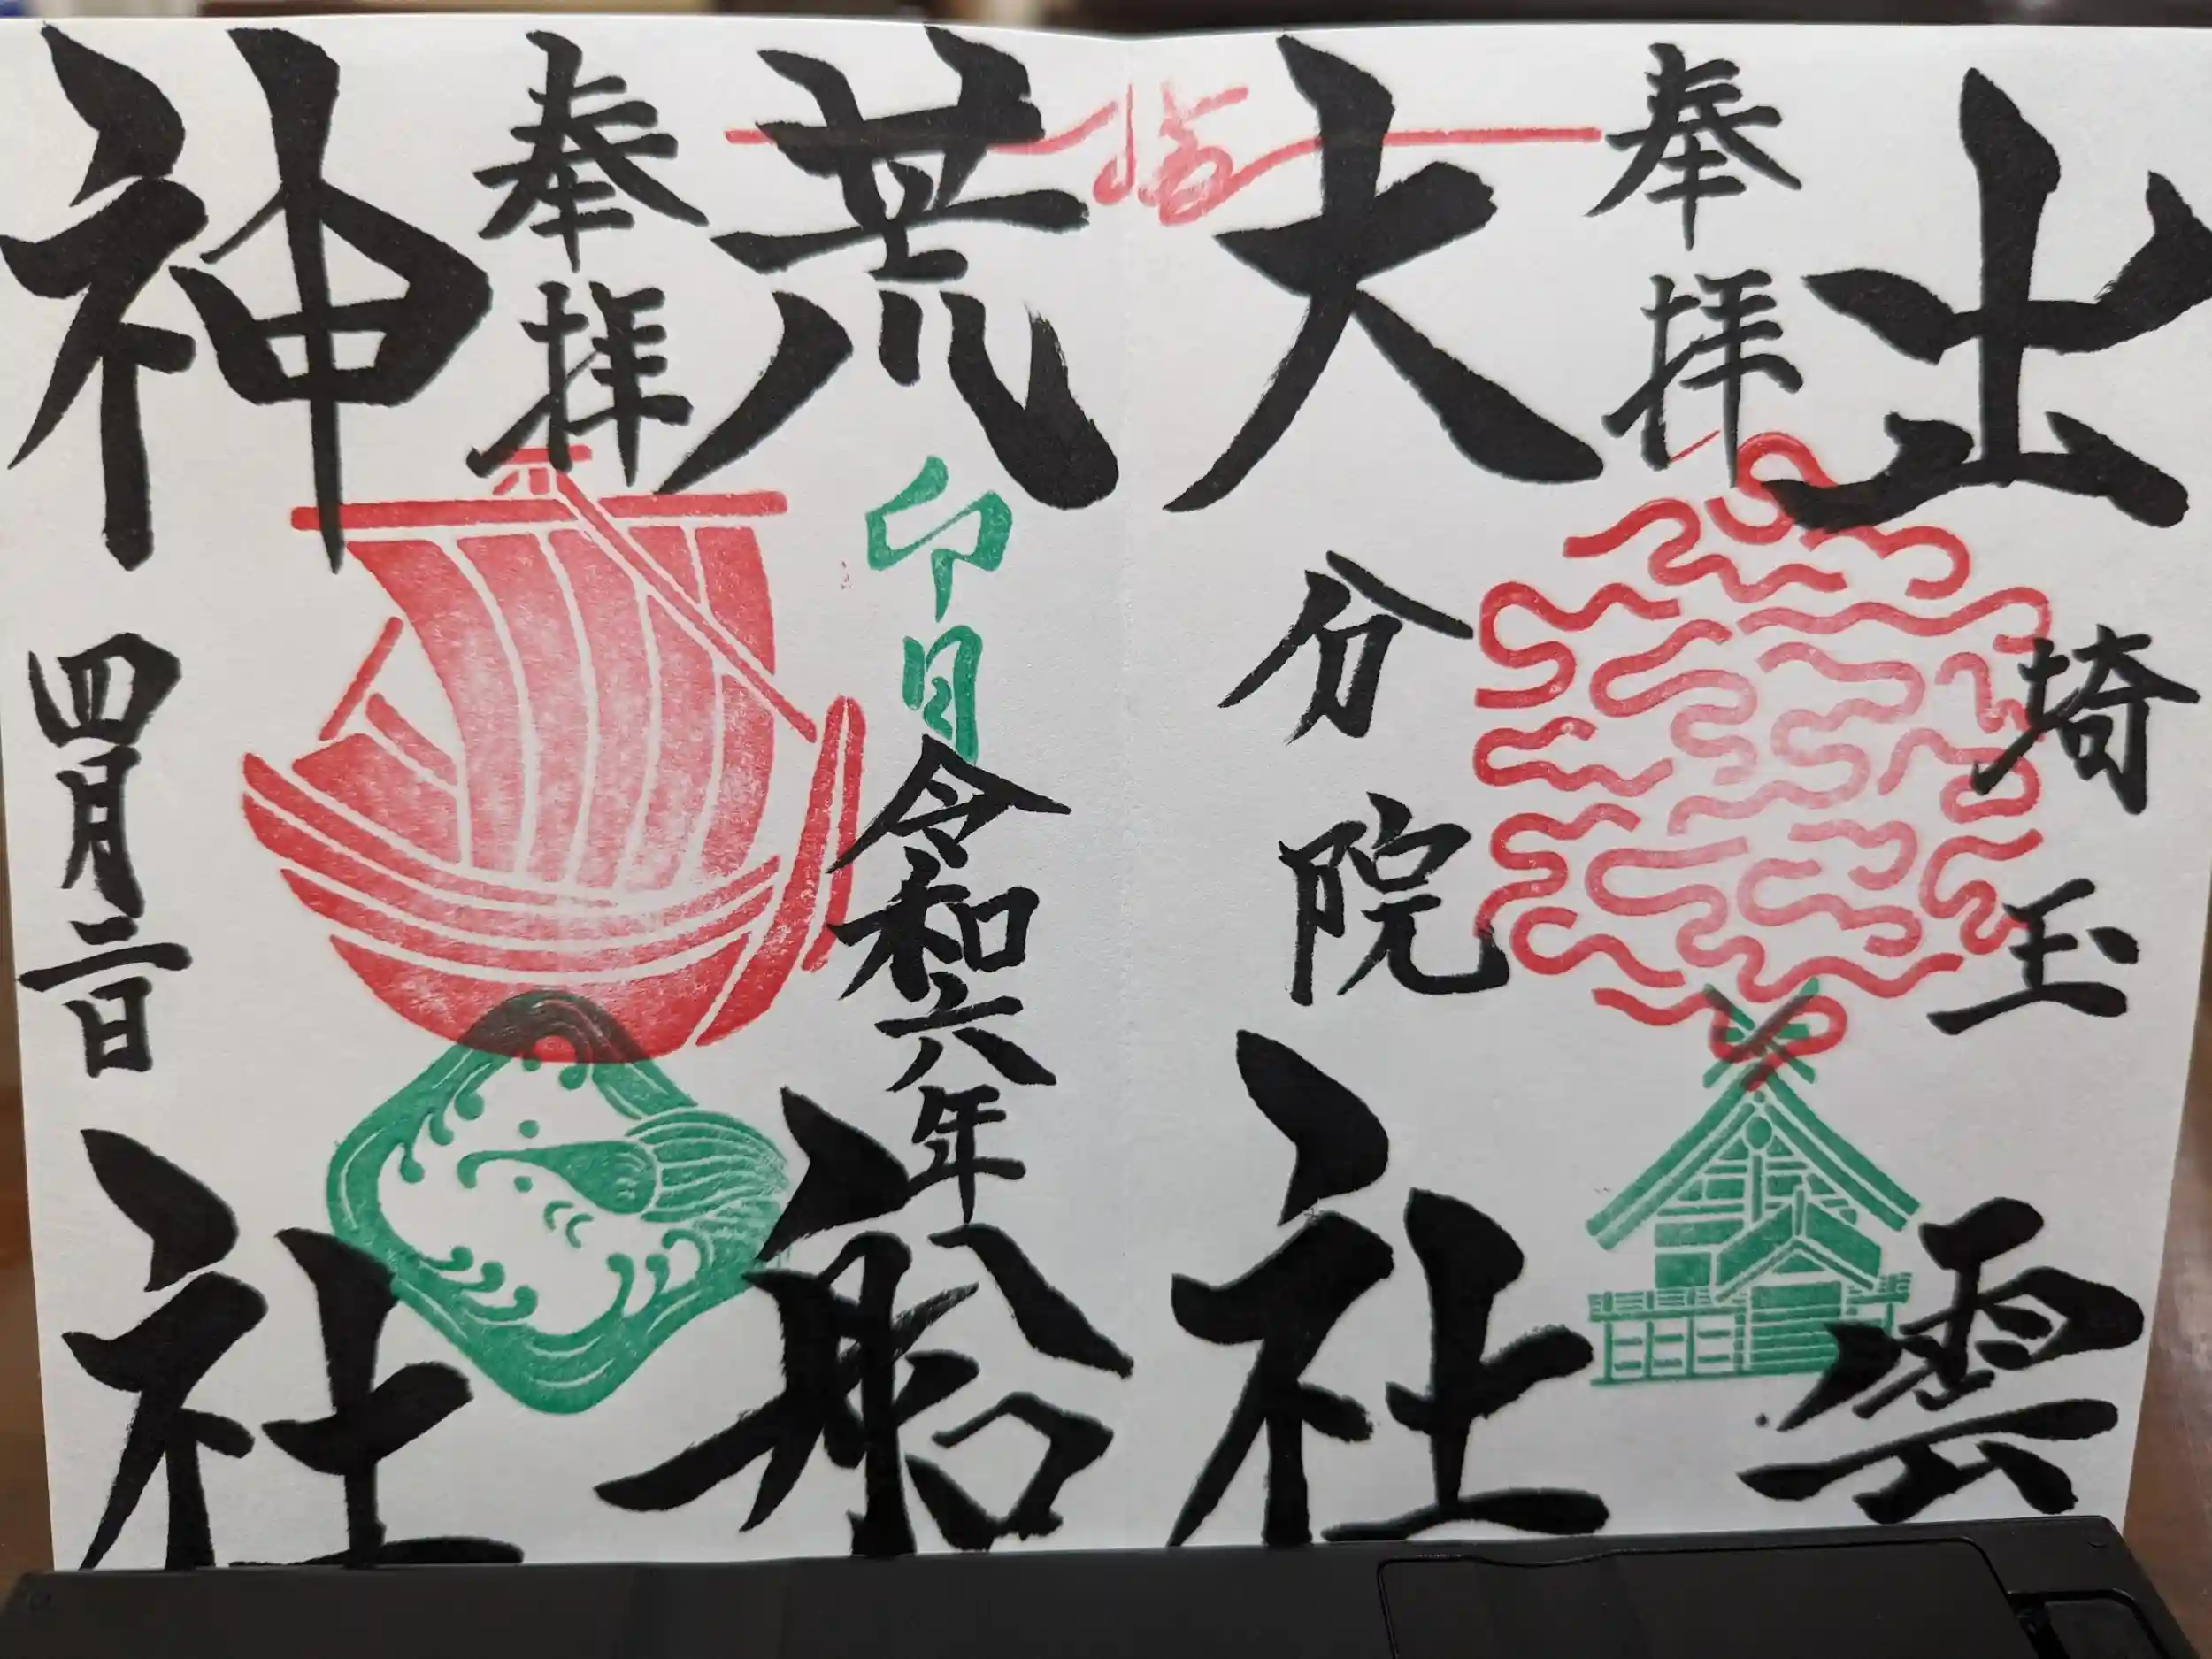 奉拝
出雲
大社
埼玉
分院
奉拝
荒船
神社
卯月
令和六年
四月二日